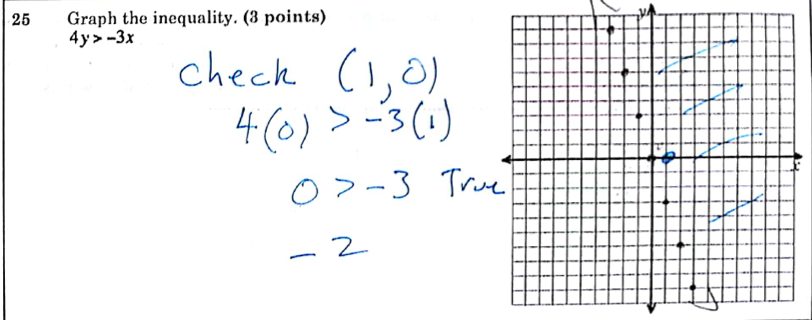 25 Graph the inequality. (3 points)
4y > -3x
check (1,0)
4(0) > -3(1)
0 > -3 True
- 2
y
x